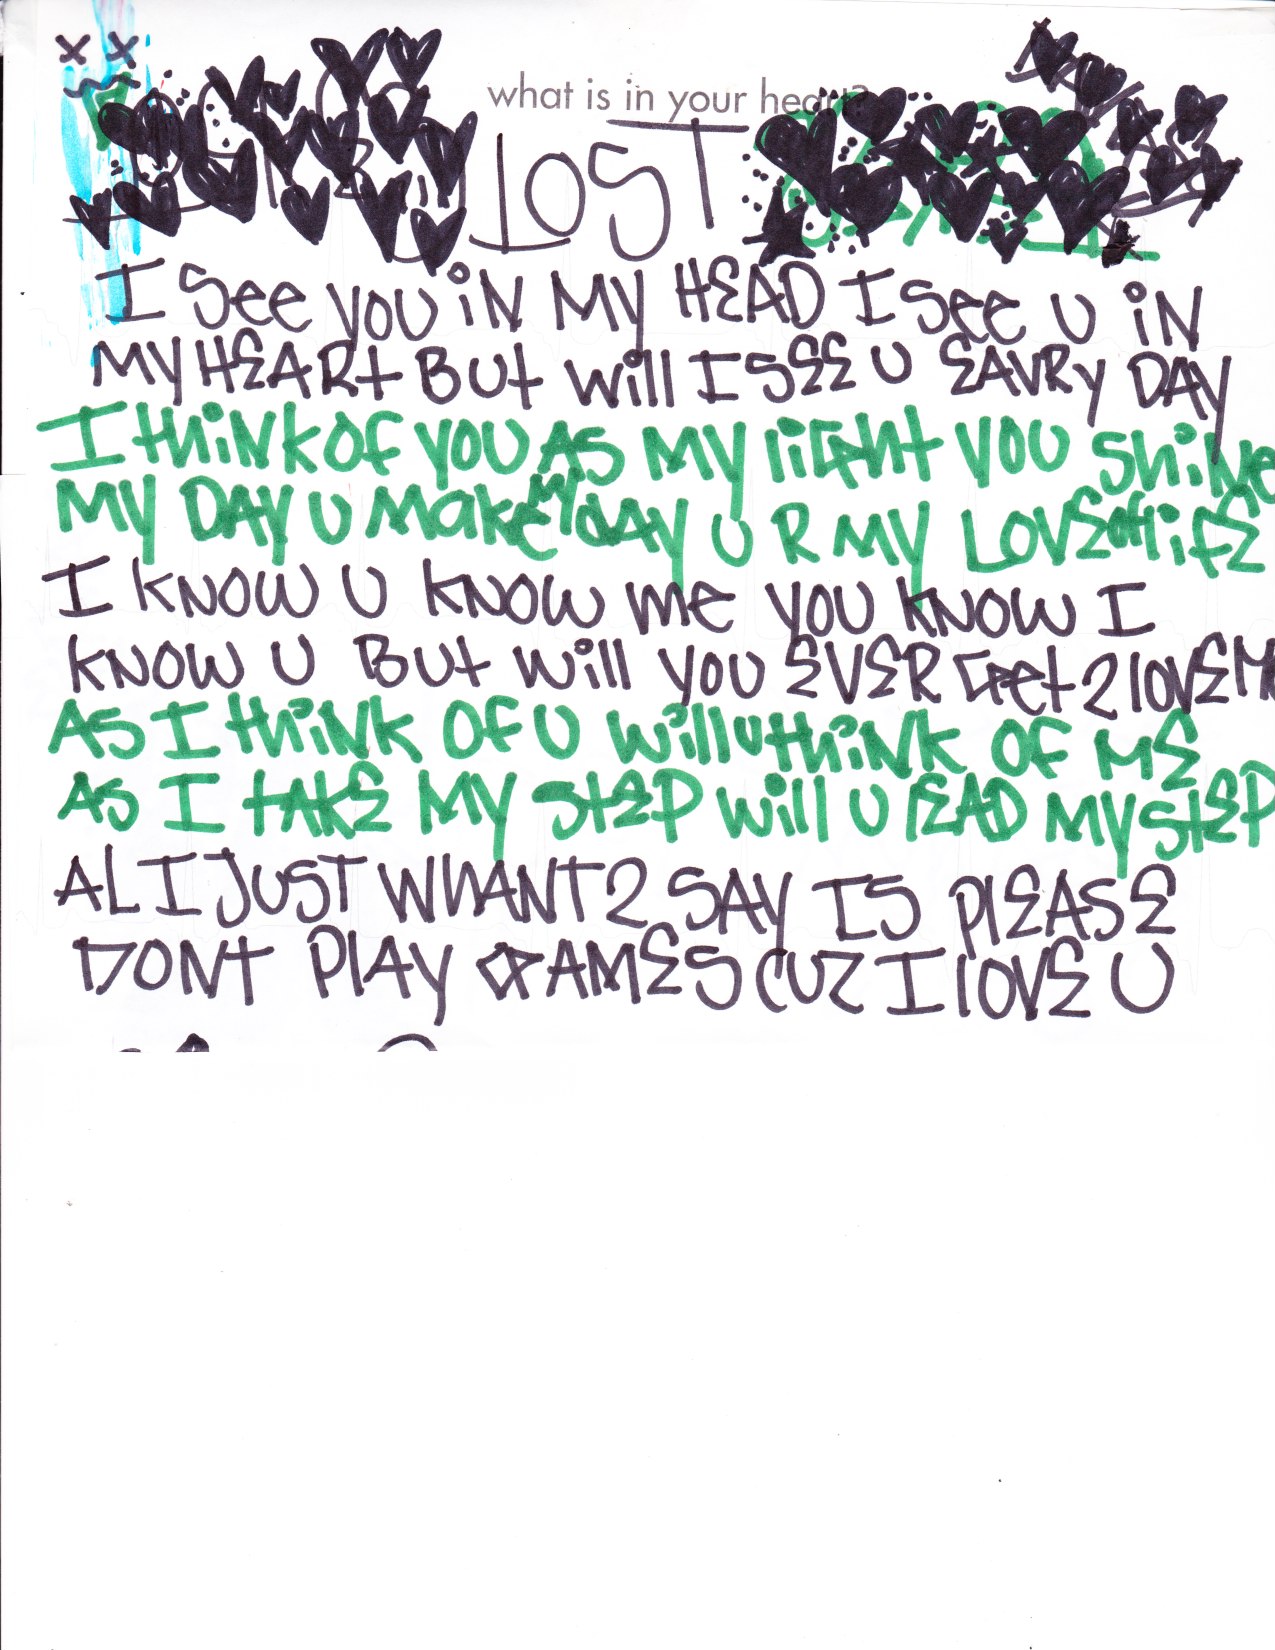 what is in your heart?
LOST
I See you iN MY HEAD I See U iN
MY HEARt BUt will I SEE U EAVRY DAY
I thiNk OF YOU AS MY light YOU ShiNe
MY DAY U Make MY dAY U R MY LOVE OF liFE
I kNOW U kNOW me YOU kNOW I
kNOW U BUt will YOU EVER Get 2 lOVE Me
AS I thiNk OF U will U thiNk OF ME
AS I tAkE MY StEP will U lEAD MY StEP
AL I JUST WhANT 2 SAY IS PlEASE
DONt PlAY GAMES CUZ I lOVE U